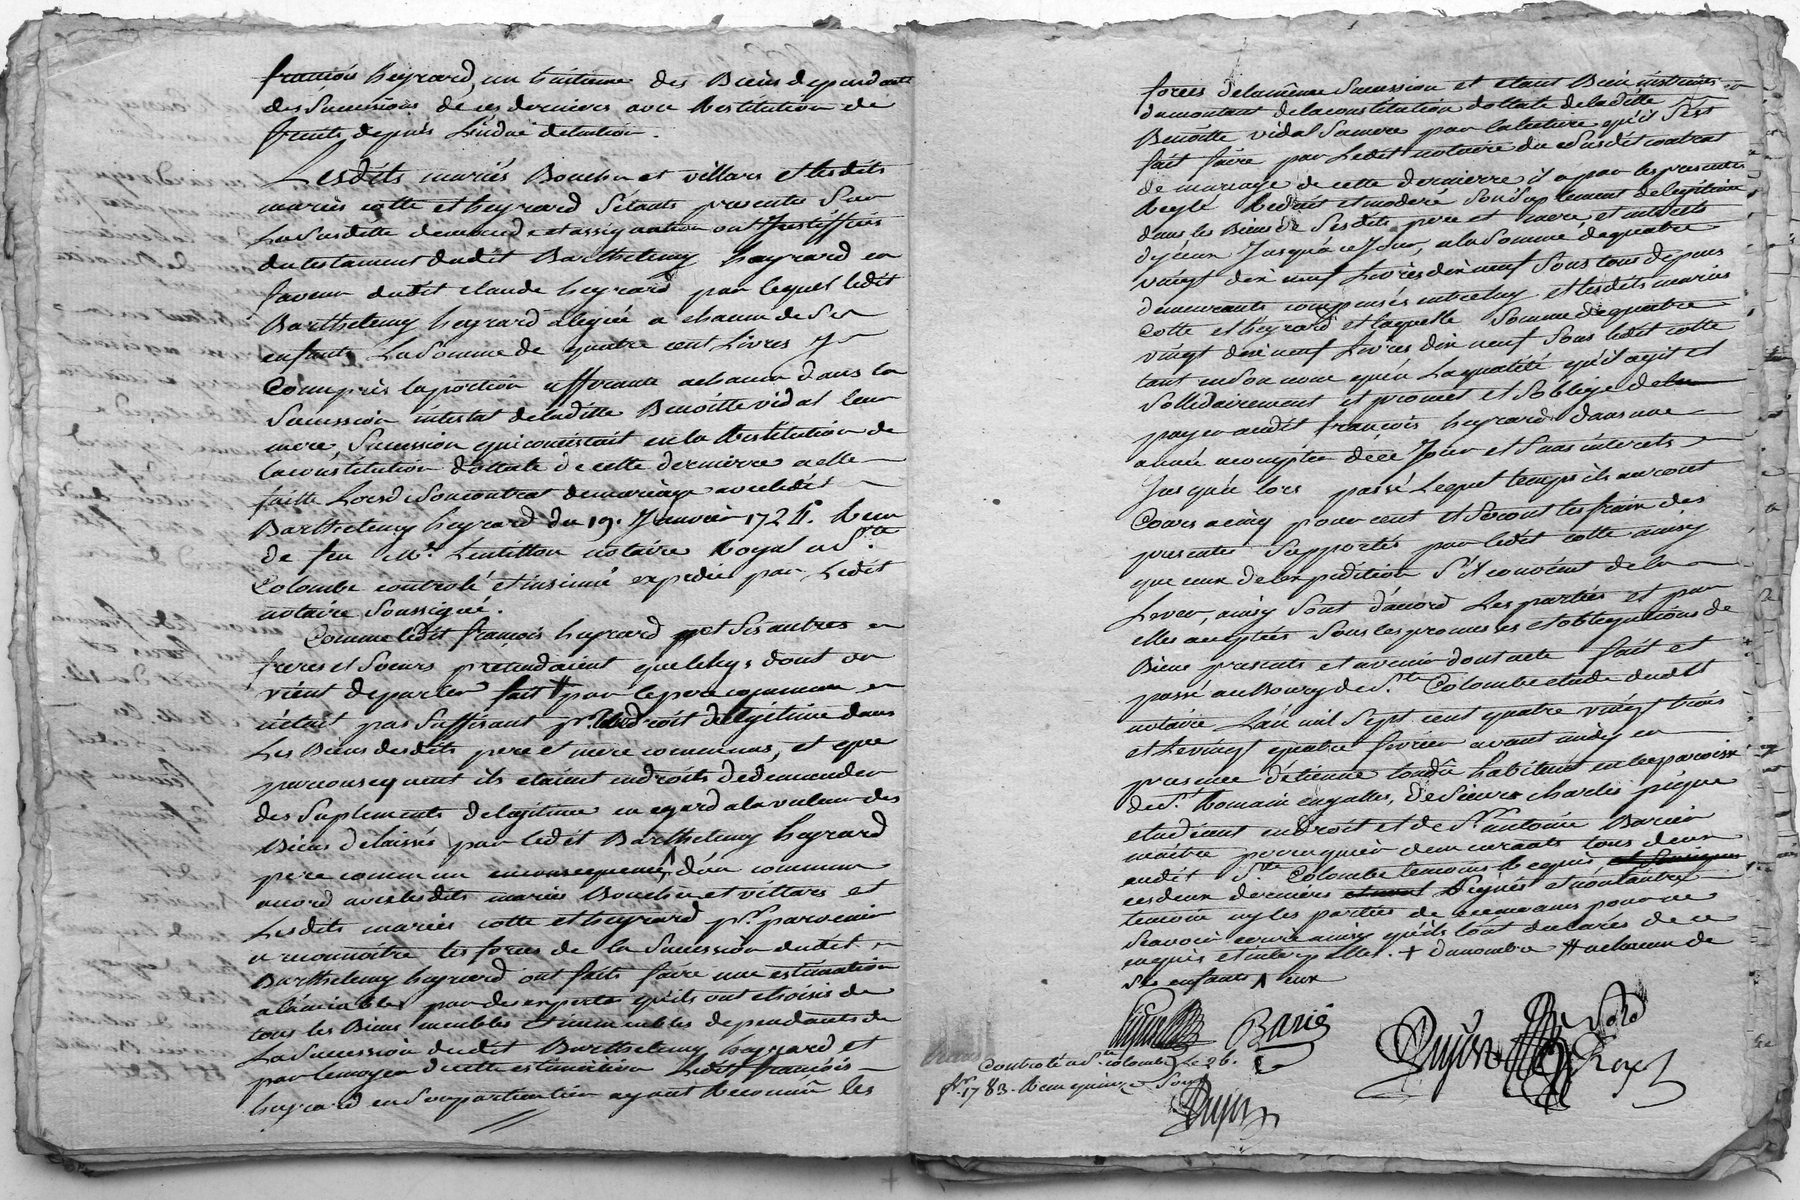 françois heyrard, un huitieme des Biens dependants
des Successions de ces derniers avec Restitution de
fruits depuis L'indue detention.
Lesdits mariés Bouchu et villars et lesdits
mariés cotte et heyrard s'étants presentés Sur
La Susditte demande et assignation ont Justiffiés
du testament dudit Barthelemy heyrard en
faveur dudit claude heyrard par lequel ledit
Barthelemy heyrard a legué a chacun de Ses
enfants La Somme de quatre cent Livres y
Compris la portion afferante a chacun dans la
Succession intestat de laditte Benoitte vidal leur
mere, Succession qui consistait en la Restitution de
la constitution dottale de cette derniere a elle
faitte Lors de Son contrat de mariage avec ledit
Barthelemy heyrard du 19. Janvier 1724. Recu
de feu Me. Lentillon notaire Royal a Ste.
Colombe controlé et insinué expedié par Ledit
notaire Soussigné.
Comme ledit françois heyrard et Ses autres
freres et Soeurs pretendaient que le legs dont on
vient de parler fait # par le pere commun
n'était pas Suffisant pr. leur droit de legitime dans
Les Biens desdits pere et mere communs, et que
par consequent ils etaient en droits de demander
des Suplements de legitime en egard a la valeur des
Biens delaissés par ledit Barthelemy heyrard
pere commun en consequence, d'un commun
accord avec lesdits mariés Bouchu et villars et
Lesdits mariés cotte et heyrard pr. parvenir
a reconnoitre les forces de la Succession dudit
Barthelemy heyrard ont faits faire une estimation
a l'amiable par des experts qu'ils ont choisis de
tous les Biens meubles et immeubles dependants de
La Succession dudit Barthelemy heyrard et
par le moyen de cette estimation Ledit françois
heyrard en Son particulier ayant Reconnu les
forces de la même Succession et etant Bien instruit
du montant de la constitution dottale de laditte
Benoitte vidal Sa mere par la lecture qu'il S'est
fait faire par Ledit notaire du Susdit contrat
de mariage de cette derniere il a par les presentes
Reglé Reduit et moderé Son Suplement de legitime
dans les Biens de Sesdits pere et mere et interets
d'yceux Jusqu'a ce Jour, a la Somme de quatre
vingt dix neuf Livres dix neuf Sous tous depens
demeurants compensés entre luy et lesdits mariés
Cotte et heyrard et laquelle Somme de quatre
vingt dix neuf Livres dix neuf Sous ledit cotte
tant en Son nom qu'en La qualité qu'il agit et
Sollidairement et promet et S'oblige de la
payer audit françois heyrard dans une
année a compter de ce Jour et Sans interets
Jusqu'a lors passé Lequel temps ils auront
Cours a cinq pour cent et Seront les frais des
presentes Supportés par ledit cotte ainsy
que ceux de l'expedition S'il convient de la
Lever, ainsy Sont d'acord Les parties et par
elles acceptées Sous les promesses et obligations de
Biens presents et avenir dont acte fait et
passé au Bourg de Ste. Colombe etude dudit
notaire L'an mil Sept cent quatre vingt trois
et Le vingt quatre fevrier avant midy en
presence d'etienne habitent en la paroisse
de St. Romain en galles, de Sieurs charles
etudiant en droit et de Sr. antoine Barier
maitre perruquier demeurants tous deux
audit Ste. Colombe temoins Requis,
ces deux derniers Signés et non l'autre
temoin ny les parties de ce enquis pour ne
Scavoir ecrire ainsy qu'ils l'ont declarés de ce
enquis et interpellés. + du nombre # a chacun de
Ses enfants ^ eux
Barié
Dujon
Controlé a Ste. colombe Le 26.
fer. 1783. Recu quinze Sous
Dujon